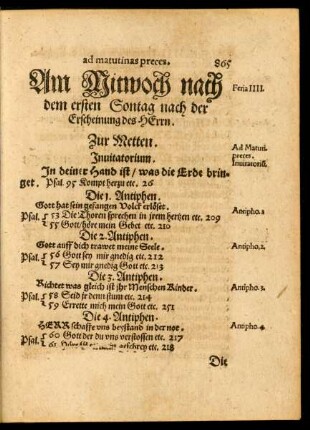 ad matutinas preces. 865
Am Mitwoch nach
Feria IIII.
dem ersten Sontag nach der
Erscheinung des HErrn.
Zur Metten.
Ad Matuti.
preces.
Inuitatoriū.
Inuitatorium.
In deiner Hand ist / was die Erde brin-
get. Psal. 95 Kompt herzu etc. 26
Die 1. Antiphen.
Gott hat sein gefangen Volck erlöset.
Antipho. 1
Psal. { 53 Die Thoren sprechen in jrem hertzen etc. 209
55 Gott / höre mein Gebet etc. 210
Die 2. Antiphen.
Gott auff dich trawet meine Seele.
Antipho. 2.
Psal. { 56 Gott sey mir gnedig etc. 212
57 Sey mir gnedig Gott etc. 213
Die 3. Antiphen.
Richtet was gleich ist jhr Menschen Kinder.
Antipho. 3
Psal. { 58 Seid jr denn stum etc. 214
59 Errette mich mein Gott etc. 251
Die 4. Antiphen.
HERR schaffe vns beystand in der not.
Antipho. 4
Psal. { 60 Gott der du vns verstossen etc. 217
61 geschrey etc. 218
Die